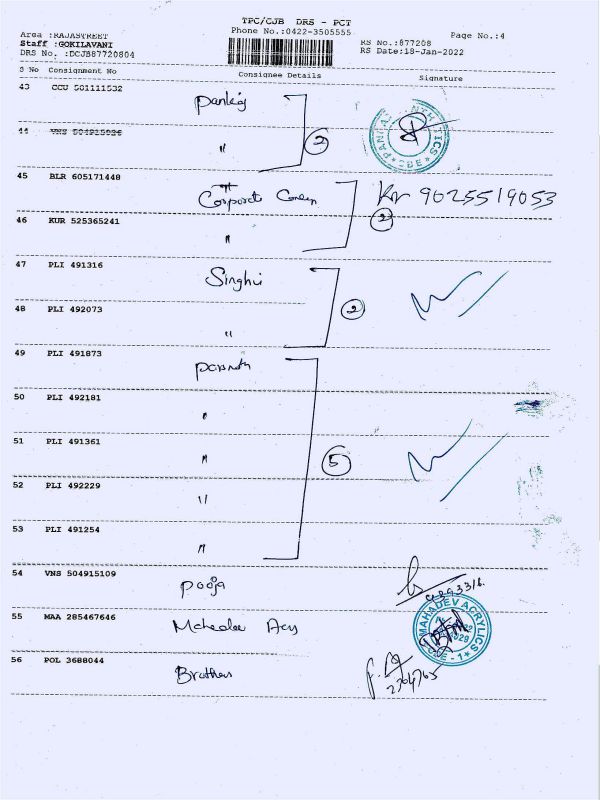 TPC/CJB DRS - PCT
Area :RAJASTREET Phone No.:0422-3505555 Page No.:4
Staff :GOKILAVANI RS No.:877208
DRS No. :DCJB87720804 RS Date:18-Jan-2022
S No Consignment No Consignee Details Signature
43 CCU 501111532 Pankaj
44 VNS 504925826 " 2
45 BLR 605171448 Corporate 9025519053
46 KUR 525365241 " 2
47 PLI 491316 Singhvi
48 PLI 492073 " 2
49 PLI 491873
50 PLI 492181 "
51 PLI 491361 " 5
52 PLI 492229 "
53 PLI 491254 "
54 VNS 504915109 Pooja
55 MAA 285467646 Mahadev MAHADEV ACRYLICS
56 POL 3688044 Brothers